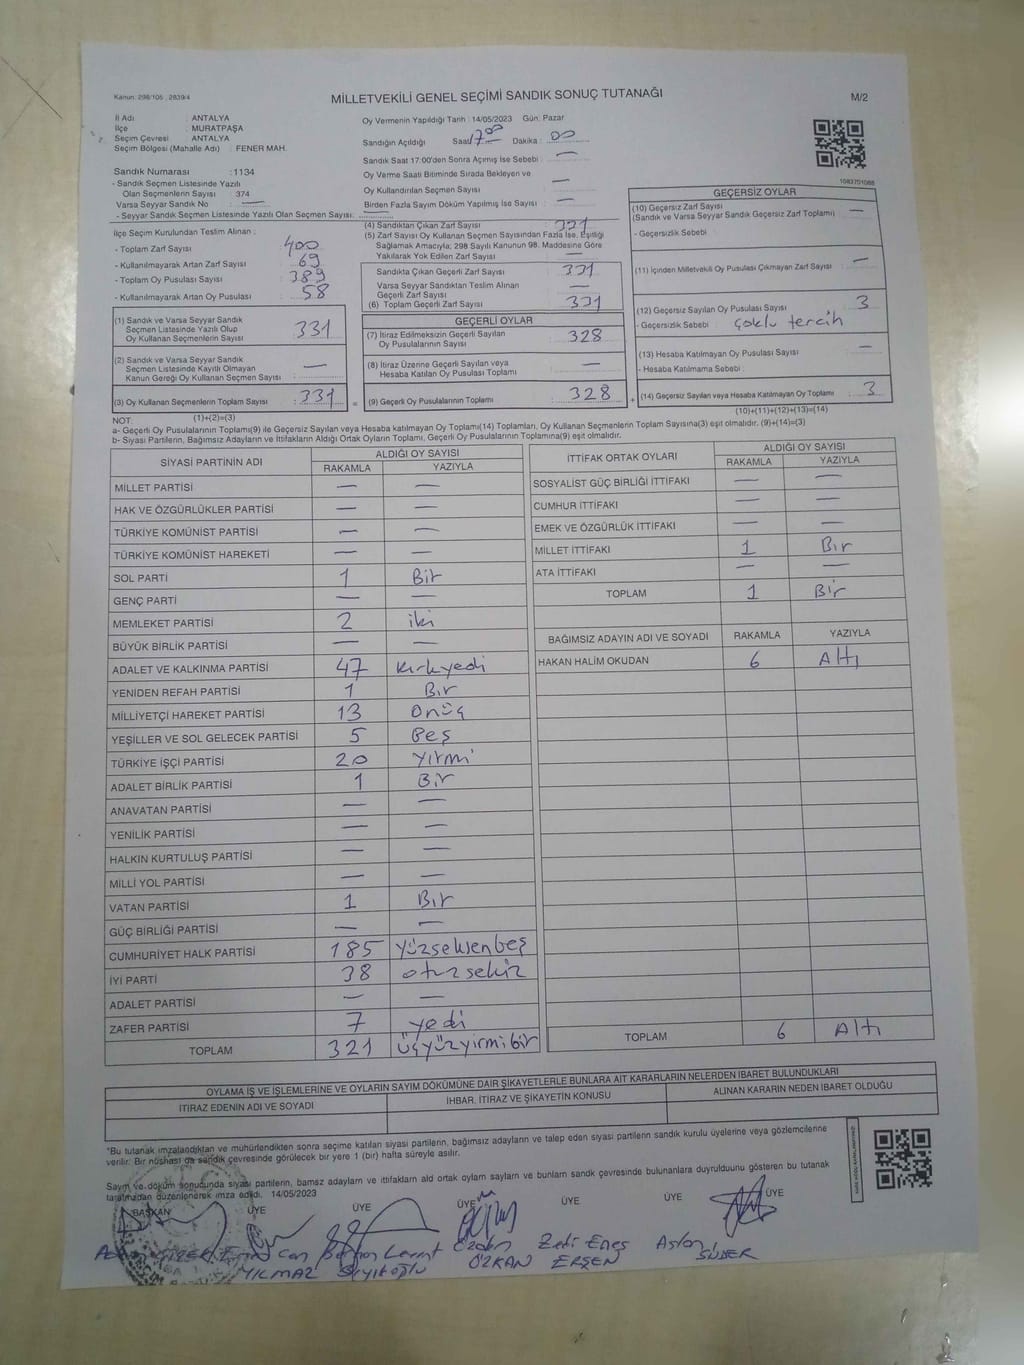 Kanun: 298/105 , 2839/4
MİLLETVEKİLİ GENEL SEÇİMİ SANDIK SONUÇ TUTANAĞI
M/2
İl Adı : ANTALYA
İlçe : MURATPAŞA
Seçim Çevresi : ANTALYA
Seçim Bölgesi (Mahalle Adı) : FENER MAH.
Oy Vermenin Yapıldığı Tarih : 14/05/2023 Gün: Pazar
Sandığın Açıldığı Saat: 17 00 Dakika : 00
Sandık Saat 17:00'den Sonra Açımış İse Sebebi : —
Oy Verme Saati Bitiminde Sırada Bekleyen ve
Oy Kullandırılan Seçmen Sayısı : —
Birden Fazla Sayım Döküm Yapılmış İse Sayısı : —
1083751088
Sandık Numarası : 1134
- Sandık Seçmen Listesinde Yazılı
Olan Seçmenlerin Sayısı : 374
Varsa Seyyar Sandık No : —
- Seyyar Sandık Seçmen Listesinde Yazılı Olan Seçmen Sayısı: —
İlçe Seçim Kurulundan Teslim Alınan :
- Toplam Zarf Sayısı : 400
- Kullanılmayarak Artan Zarf Sayısı : 69
- Toplam Oy Pusulası Sayısı : 389
- Kullanılmayarak Artan Oy Pusulası : 58
(1) Sandık ve Varsa Seyyar Sandık
Seçmen Listesinde Yazılı Olup
Oy Kullanan Seçmenlerin Sayısı : 331
(2) Sandık ve Varsa Seyyar Sandık
Seçmen Listesinde Kayıtlı Olmayan
Kanun Gereği Oy Kullanan Seçmen Sayısı : —
(3) Oy Kullanan Seçmenlerin Toplam Sayısı : 331
(1)+(2)=(3)
(4) Sandıktan Çıkan Zarf Sayısı : 331
(5) Zarf Sayısı Oy Kullanan Seçmen Sayısından Fazla İse, Eşitliği
Sağlamak Amacıyla; 298 Sayılı Kanunun 98. Maddesine Göre
Yakılarak Yok Edilen Zarf Sayısı : —
Sandıkta Çıkan Geçerli Zarf Sayısı : 331
Varsa Seyyar Sandıktan Teslim Alınan
Geçerli Zarf Sayısı : —
(6) Toplam Geçerli Zarf Sayısı : 331
GEÇERLİ OYLAR
(7) İtiraz Edilmeksizin Geçerli Sayılan
Oy Pusulalarının Sayısı : 328
(8) İtiraz Üzerine Geçerli Sayılan veya
Hesaba Katılan Oy Pusulası Toplamı : —
= (9) Geçerli Oy Pusulalarının Toplamı : 328
GEÇERSİZ OYLAR
(10) Geçersiz Zarf Sayısı : —
(Sandık ve Varsa Seyyar Sandık Geçersiz Zarf Toplamı)
- Geçersizlik Sebebi :
(11) İçinden Milletvekili Oy Pusulası Çıkmayan Zarf Sayısı : —
(12) Geçersiz Sayılan Oy Pusulası Sayısı : 3
- Geçersizlik Sebebi : çoklu tercih
(13) Hesaba Katılmayan Oy Pusulası Sayısı : —
- Hesaba Katılmama Sebebi :
+ (14) Geçersiz Sayılan veya Hesaba Katılmayan Oy Toplamı : 3
(10)+(11)+(12)+(13)=(14)
NOT:
a- Geçerli Oy Pusulalarının Toplamı(9) ile Geçersiz Sayılan veya Hesaba katılmayan Oy Toplamı(14) Toplamları, Oy Kullanan Seçmenlerin Toplam Sayısına(3) eşit olmalıdır. (9)+(14)=(3)
b- Siyasi Partilerin, Bağımsız Adayların ve İttifakların Aldığı Ortak Oyların Toplamı, Geçerli Oy Pusulalarının Toplamına(9) eşit olmalıdır.
SİYASİ PARTİNİN ADI ALDIĞI OY SAYISI
RAKAMLA YAZIYLA
MİLLET PARTİSİ — —
HAK VE ÖZGÜRLÜKLER PARTİSİ — —
TÜRKİYE KOMÜNİST PARTİSİ — —
TÜRKİYE KOMÜNİST HAREKETİ — —
SOL PARTİ 1 Bir
GENÇ PARTİ — —
MEMLEKET PARTİSİ 2 iki
BÜYÜK BİRLİK PARTİSİ — —
ADALET VE KALKINMA PARTİSİ 47 kırkyedi
YENİDEN REFAH PARTİSİ 1 Bir
MİLLİYETÇİ HAREKET PARTİSİ 13 onüç
YEŞİLLER VE SOL GELECEK PARTİSİ 5 Beş
TÜRKİYE İŞÇİ PARTİSİ 20 Yirmi
ADALET BİRLİK PARTİSİ 1 Bir
ANAVATAN PARTİSİ — —
YENİLİK PARTİSİ — —
HALKIN KURTULUŞ PARTİSİ — —
MİLLİ YOL PARTİSİ — —
VATAN PARTİSİ 1 Bir
GÜÇ BİRLİĞİ PARTİSİ — —
CUMHURİYET HALK PARTİSİ 185 Yüzseksenbeş
İYİ PARTİ 38 otuzsekiz
ADALET PARTİSİ — —
ZAFER PARTİSİ 7 yedi
TOPLAM 321 üçyüzyirmibir
İTTİFAK ORTAK OYLARI ALDIĞI OY SAYISI
RAKAMLA YAZIYLA
SOSYALİST GÜÇ BİRLİĞİ İTTİFAKI — —
CUMHUR İTTİFAKI — —
EMEK VE ÖZGÜRLÜK İTTİFAKI — —
MİLLET İTTİFAKI 1 Bir
ATA İTTİFAKI — —
TOPLAM 1 Bir
BAĞIMSIZ ADAYIN ADI VE SOYADI RAKAMLA YAZIYLA
HAKAN HALİM OKUDAN 6 Altı
TOPLAM 6 Altı
OYLAMA İŞ VE İŞLEMLERİNE VE OYLARIN SAYIM DÖKÜMÜNE DAİR ŞİKAYETLERLE BUNLARA AİT KARARLARIN NELERDEN İBARET BULUNDUKLARI
İTİRAZ EDENİN ADI VE SOYADI İHBAR, İTİRAZ VE ŞİKAYETİN KONUSU ALINAN KARARIN NEDEN İBARET OLDUĞU
*Bu tutanak imzalandıktan ve mühürlendikten sonra seçime katılan siyasi partilerin, bağımsız adayların ve talep eden siyasi partilerin sandık kurulu üyelerine veya gözlemcilerine
verilir. Bir nüshası da sandık çevresinde görülecek bir yere 1 (bir) hafta süreyle asılır.
Sayım ve döküm sonucunda siyasi partilerin, bamsz adayların ve ittifakların ald ortak oylam sayların ve bunlarn sandk çevresinde bulunanlara duyrulduunu gösteren bu tutanak
tarafmzdan düzenlenerek imza edildi. 14/05/2023
BAŞKAN ÜYE ÜYE ÜYE ÜYE ÜYE ÜYE
Can Levent Özdın Zeki Eneş Aslan
YILMAZ ÖZKAN ERŞEN SÜBER